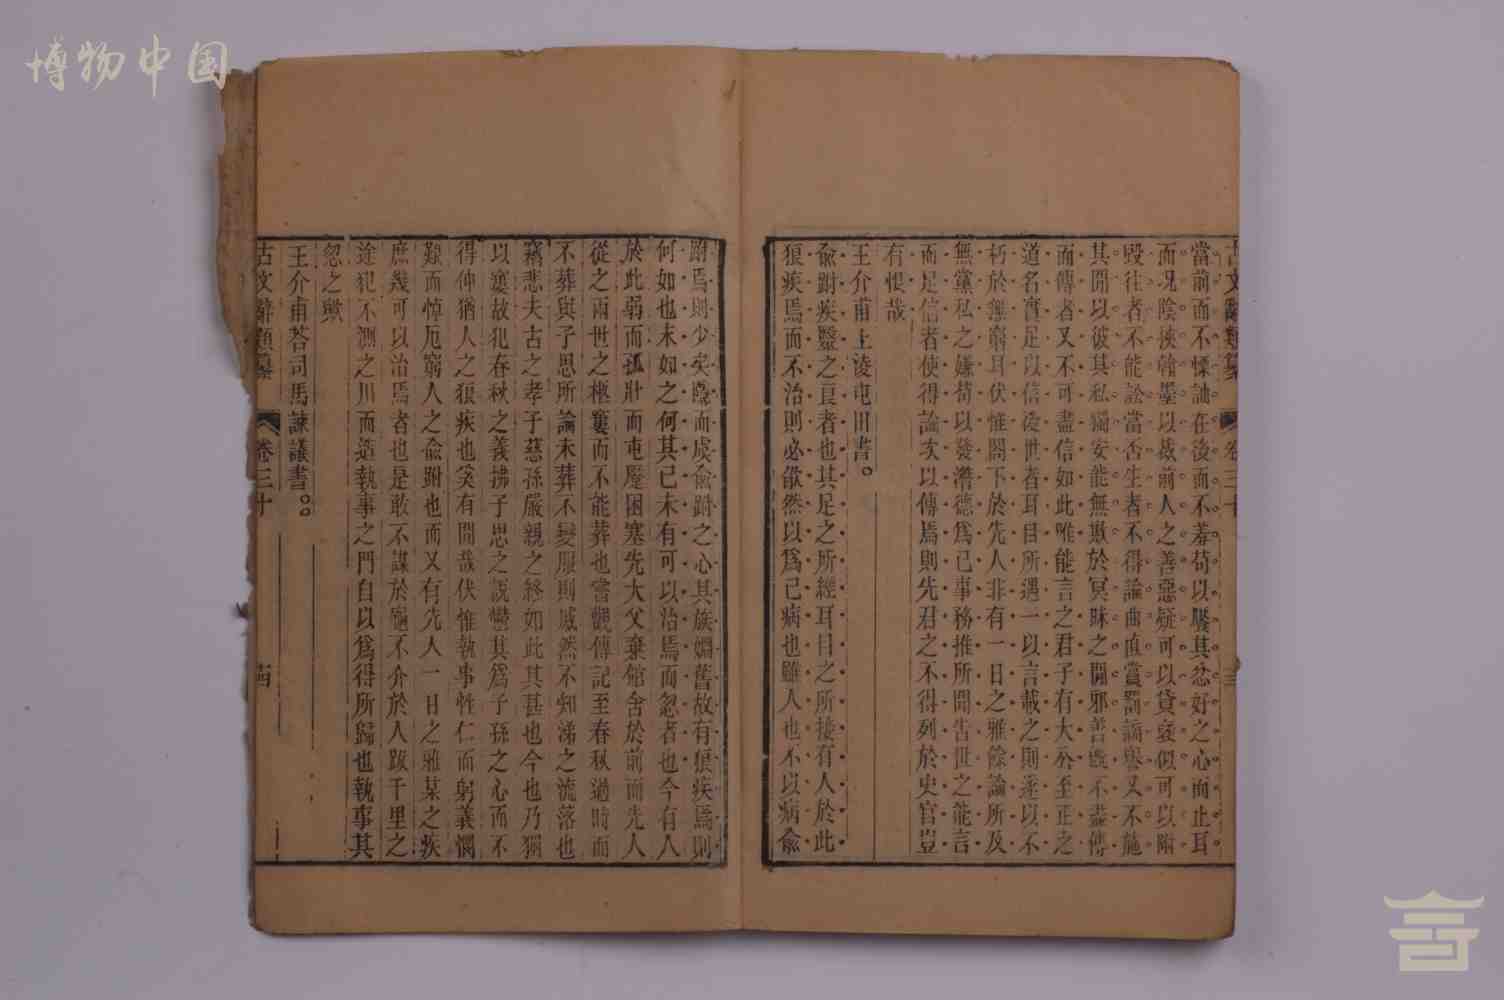 古文辭類纂 卷三十
當前而不慄訕在後而不羞苟以饜其忿好之心而止耳
而況陰挾翰墨以裁前人之善惡疑可以貸褒似可以附
毀往者不能訟當否生者不得論曲直賞罰謗譽又不施
其閒以彼其私獨安能無欺於冥昧之閒邪善既不盡傳
而傳者又不可盡信如此唯能言之君子有大公至正之
道名實足以信後世者耳目所遇一以言載之則遂以不
朽於無窮耳伏惟閣下於先人非有一日之雅餘論所及
無黨私之嫌苟以發潛德爲己事務推所聞告世之能言
而足信者使得論次以傳焉則先君之不得列於史官豈
有恨哉
王介甫上凌屯田書。
俞跗疾毉之良者也其足之所經耳目之所接有人於此
狼疾焉而不治則必欿然以爲己病也雖人也不以病俞
跗焉則少矣隱而虞俞跗之心其族婣舊故有狼疾焉則
何如也末如之何其已未有可以治焉而忽者也今有人
於此弱而孤壯而屯蹷困塞先大父棄館舍於前而先人
從之兩世之柩窶而不能葬也嘗觀傳記至春秋過時而
不葬與子思所論未葬不變服則戚然不知涕之流落也
竊悲夫古之孝子慈孫嚴親之終如此其甚也今也乃獨
以窶故犯春秋之義拂子思之說鬱其爲子孫之心而不
得伸猶人之狼疾也奚有閒哉伏惟執事性仁而躬義憫
艱而悼厄窮人之俞跗也而又有先人一日之雅某之疾
庶幾可以治焉者也是敢不謀於龜不介於人跋千里之
途犯不測之川而造執事之門自以爲得所歸也執事其
忽之歟
王介甫荅司馬諫議書。。
古文辭類纂 卷三十 十四
博物中国